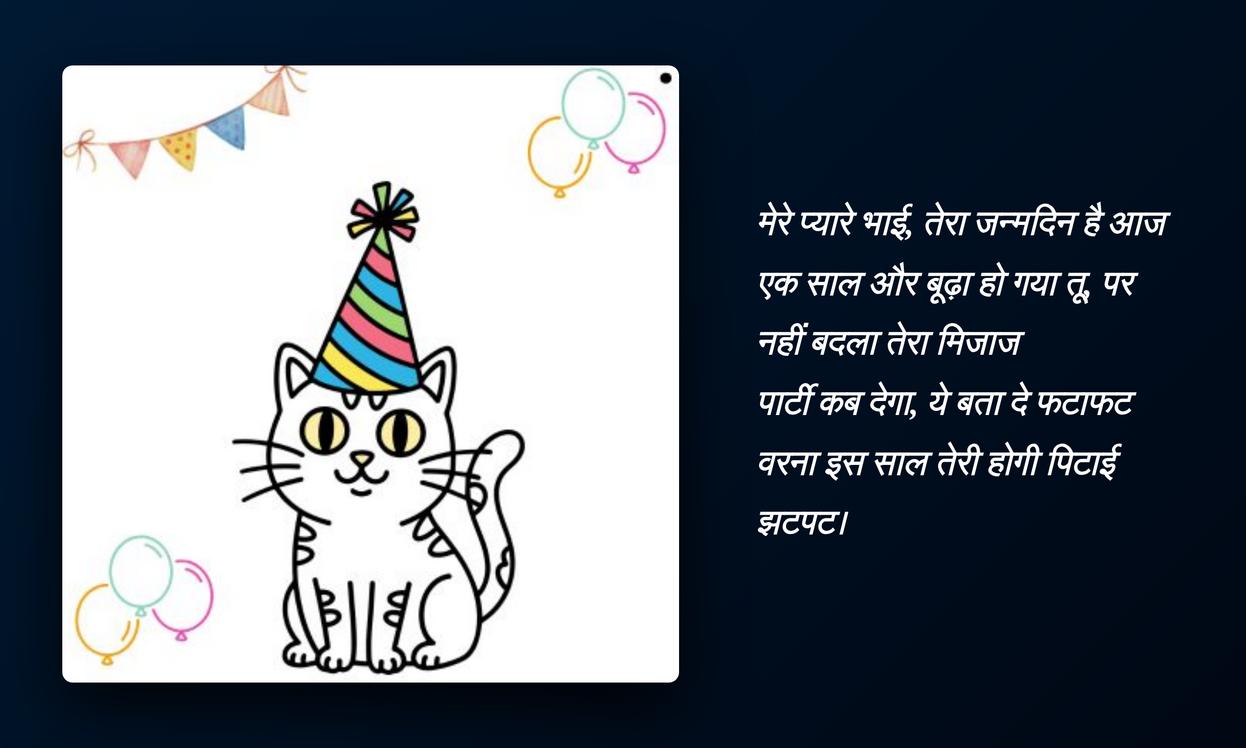 मेरे प्यारे भाई, तेरा जन्मदिन है आज
एक साल और बूढ़ा हो गया तू, पर
नहीं बदला तेरा मिजाज
पार्टी कब देगा, ये बता दे फटाफट
वरना इस साल तेरी होगी पिटाई
झटपट।